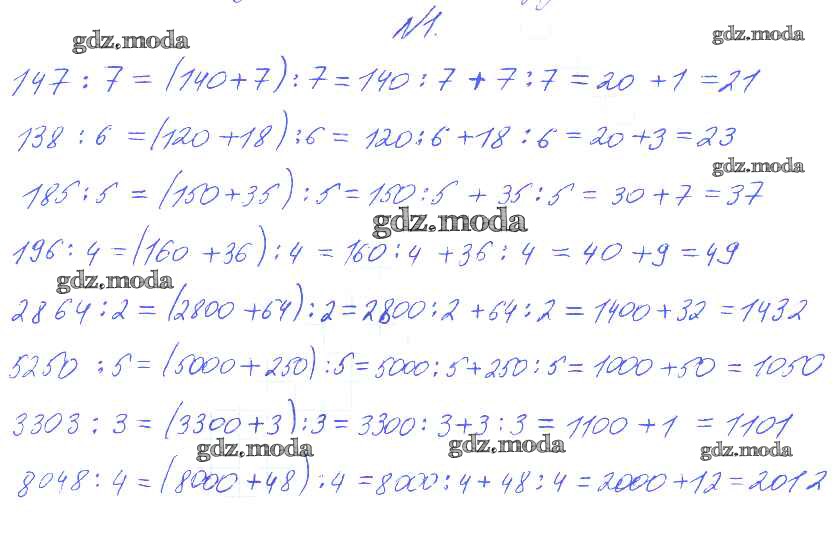 №1.
gdz.moda gdz.moda
147 : 7 = (140+7) : 7 = 140 : 7 + 7 : 7 = 20 + 1 = 21
138 : 6 = (120 + 18) : 6 = 120 : 6 + 18 : 6 = 20 + 3 = 23
gdz.moda
185 : 5 = (150 + 35) : 5 = 150 : 5 + 35 : 5 = 30 + 7 = 37
gdz.moda
196 : 4 = (160 + 36) : 4 = 160 : 4 + 36 : 4 = 40 + 9 = 49
gdz.moda
2864 : 2 = (2800 + 64) : 2 = 2800 : 2 + 64 : 2 = 1400 + 32 = 1432
5250 : 5 = (5000 + 250) : 5 = 5000 : 5 + 250 : 5 = 1000 + 50 = 1050
3303 : 3 = (3300 + 3) : 3 = 3300 : 3 + 3 : 3 = 1100 + 1 = 1101
gdz.moda gdz.moda gdz.moda
8048 : 4 = (8000 + 48) : 4 = 8000 : 4 + 48 : 4 = 2000 + 12 = 2012